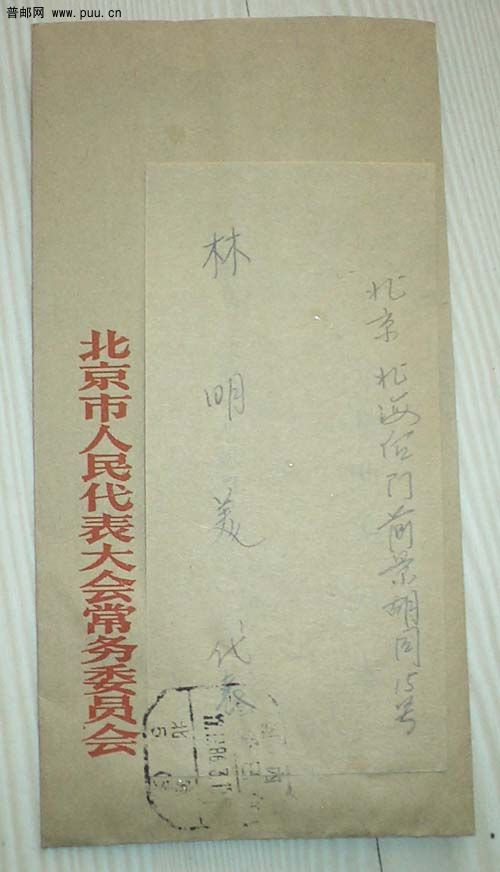 普邮网 www.puu.cn
北京 北海后门前景胡同15号
林明美 代表
北京市人民代表大会常务委员会
北